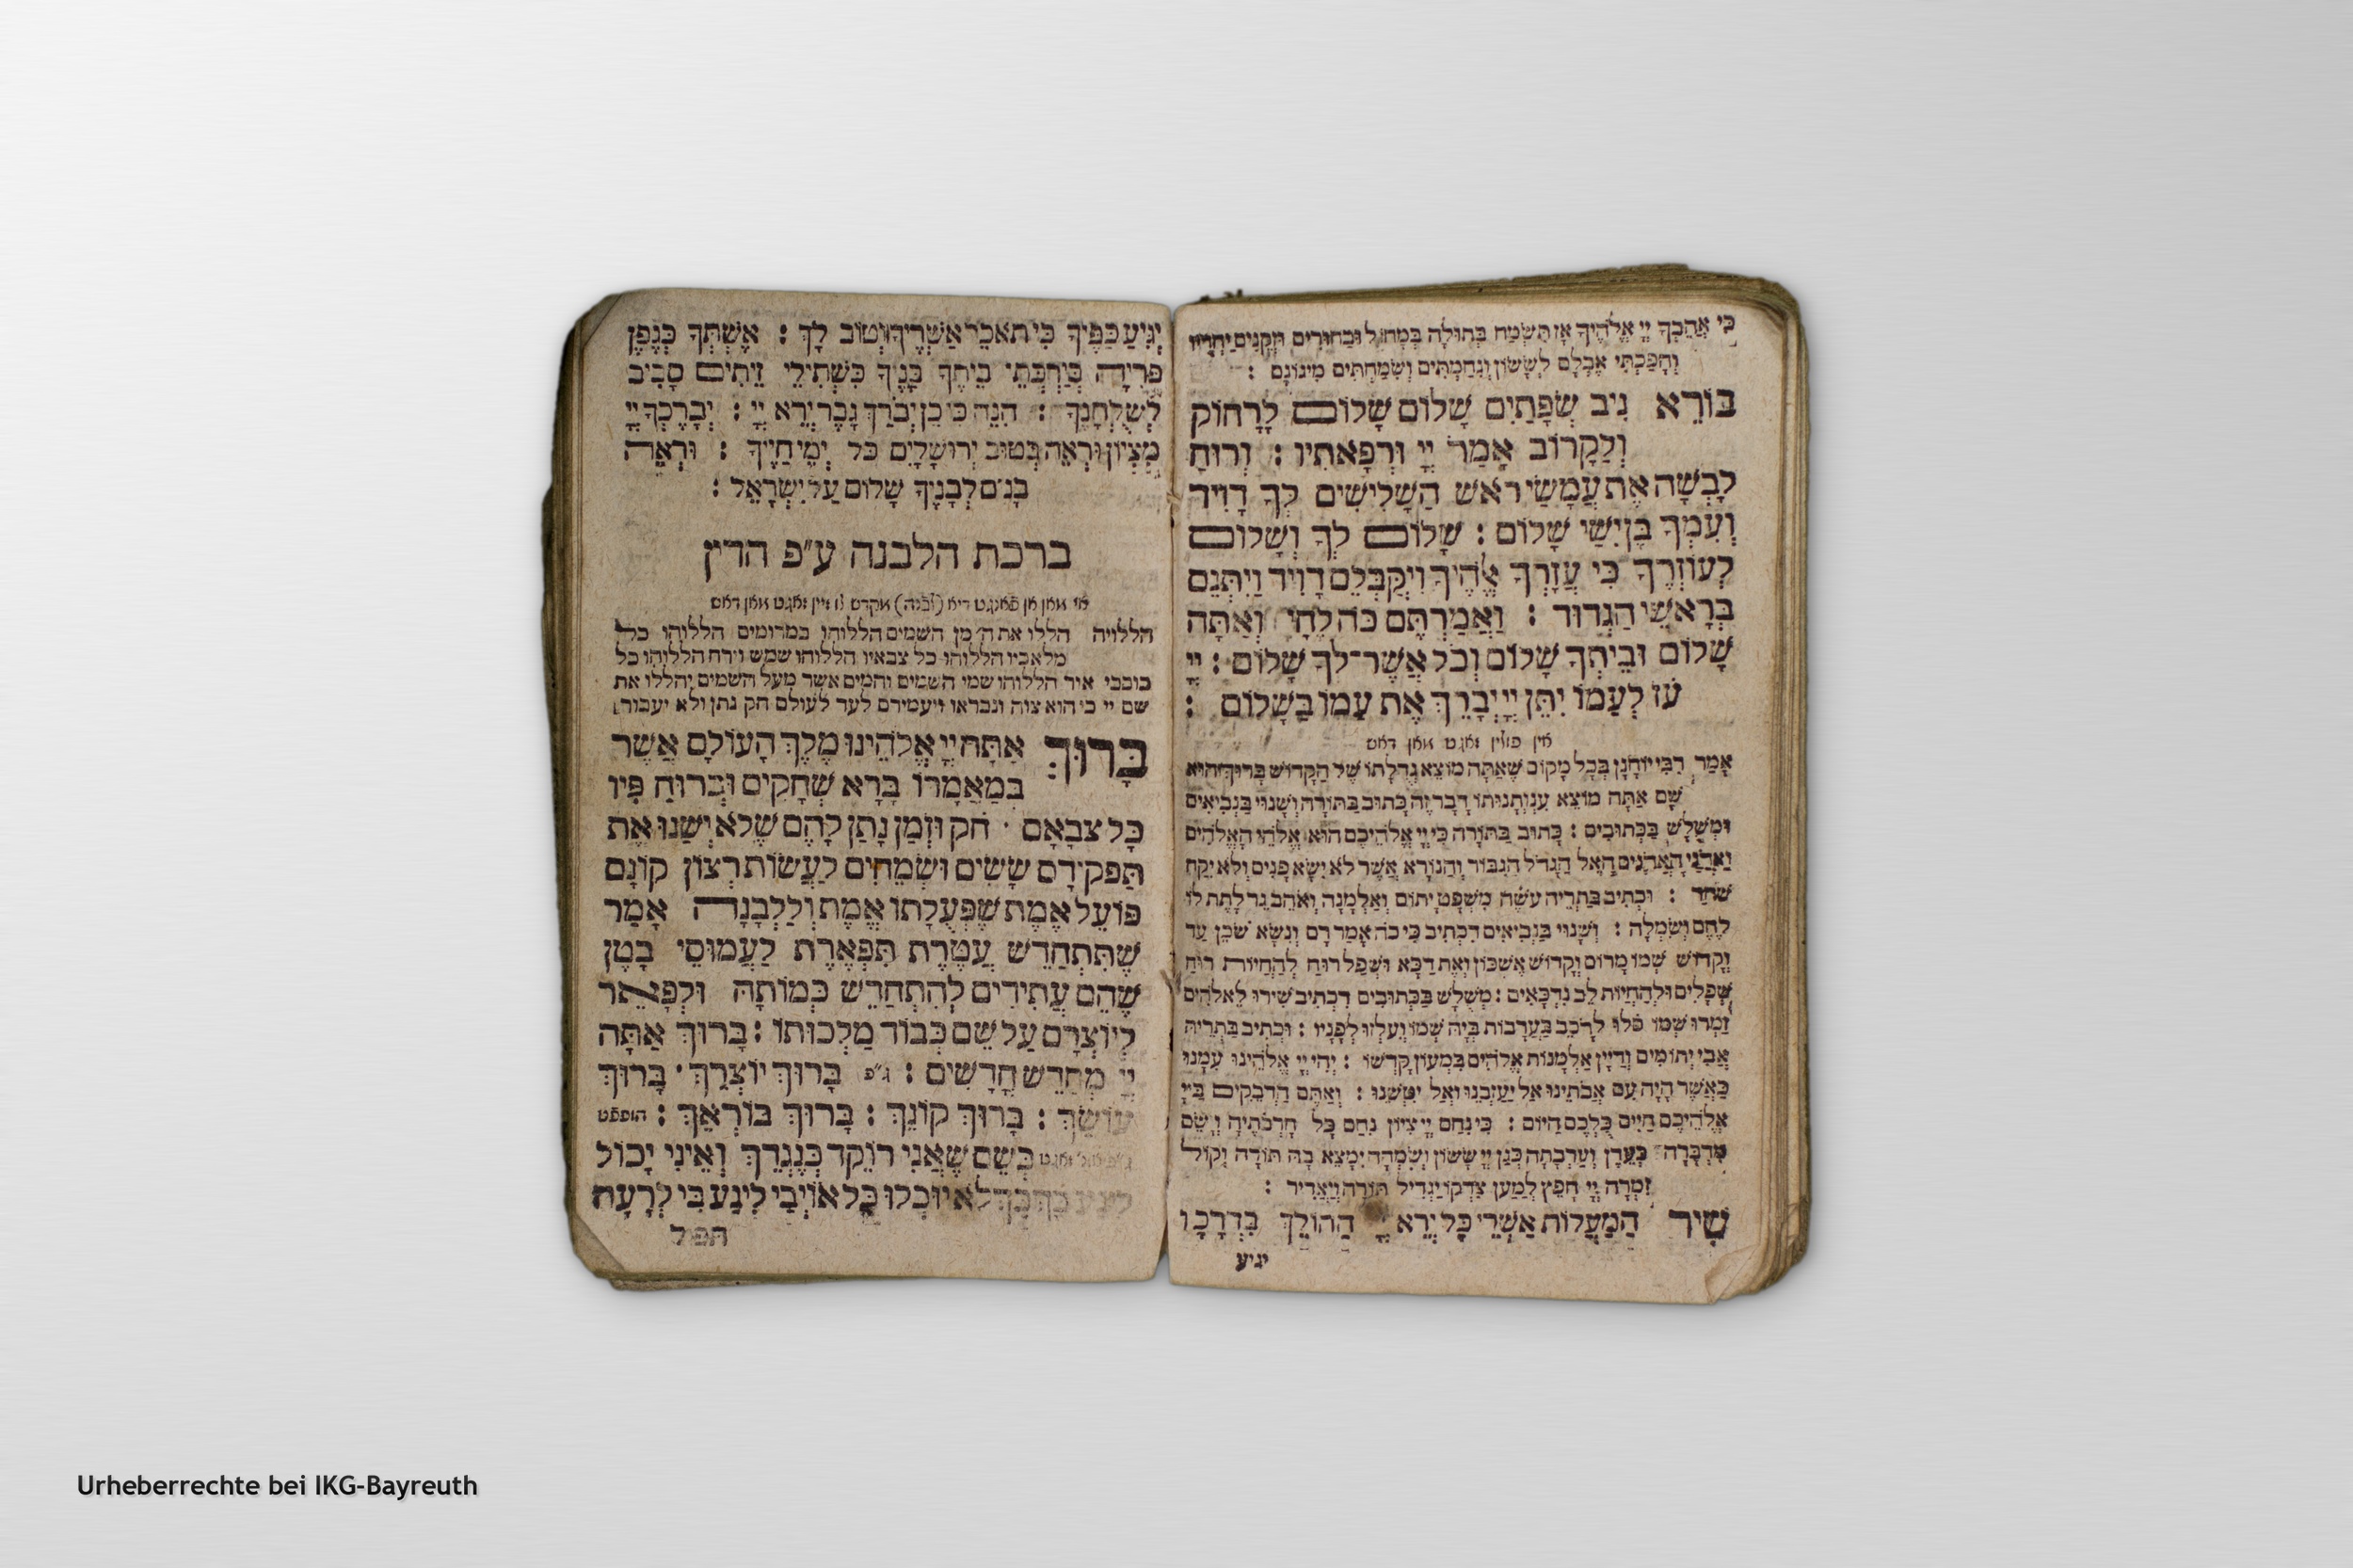 כִּי אֲהֵבְךָ יְיָ אֱלֹהֶיךָ אָז תִּשְׂמַח בְּתוּלָה בְּמָחוֹל וּבַחוּרִים וּזְקֵנִים יַחְדָּיו
וְהָפַכְתִּי אֶבְלָם לְשָׂשׂוֹן וְנִחַמְתִּים וְשִׂמַּחְתִּים מִיגוֹנָם :
בּוֹרֵא נִיב שְׂפָתַיִם שָׁלוֹם שָׁלוֹם לָרָחוֹק
וְלַקָּרוֹב אָמַר יְיָ וּרְפָאתִיו : וְרוּחַ
לָבְשָׁה אֶת עֲמָשַׂי רֹאשׁ הַשָּׁלִישִׁים לְךָ דָוִיד
וְעִמְּךָ בֶן יִשַׁי שָׁלוֹם : שָׁלוֹם לְךָ וְשָׁלוֹם
לְעוֹזְרֶךָ כִּי עֲזָרְךָ אֱלֹהֶיךָ וַיְקַבְּלֵם דָּוִיד וַיִּתְּנֵם
בְּרָאשֵׁי הַגְּדוּד : וַאֲמַרְתֶּם כֹּה לֶחָי וְאַתָּה
שָׁלוֹם וּבֵיתְךָ שָׁלוֹם וְכֹל אֲשֶׁר־לְךָ שָׁלוֹם : יְיָ
עֹז לְעַמּוֹ יִתֵּן יְיָ יְבָרֵךְ אֶת עַמּוֹ בַשָּׁלוֹם :
אין פולין זאגט מאן דאס
אָמַר רִבִּי יוֹחָנָן בְּכָל מָקוֹם שֶׁאַתָּה מוֹצֵא גְדֻלָּתוֹ שֶׁל הַקָּדוֹשׁ בָּרוּךְ הוּא
שָׁם אַתָּה מוֹצֵא עַנְוְתָנוּתוֹ דָּבָר זֶה כָּתוּב בַּתּוֹרָה וְשָׁנוּי בַּנְּבִיאִים
וּמְשֻׁלָּשׁ בַּכְּתוּבִים : כָּתוּב בַּתּוֹרָה כִּי יְיָ אֱלֹהֵיכֶם הוּא אֱלֹהֵי הָאֱלֹהִים
וַאֲדֹנֵי הָאֲדֹנִים הָאֵל הַגָּדֹל הַגִּבּוֹר וְהַנּוֹרָא אֲשֶׁר לֹא יִשָּׂא פָנִים וְלֹא יִקַּח
שֹׁחַד : וּכְתִיב בַּתְרֵיהּ עֹשֶׂה מִשְׁפַּט יָתוֹם וְאַלְמָנָה וְאֹהֵב גֵּר לָתֶת לוֹ
לֶחֶם וְשִׂמְלָה : וְשָׁנוּי בַּנְּבִיאִים דִּכְתִיב כִּי כֹה אָמַר רָם וְנִשָּׂא שֹׁכֵן עַד
וְקָדוֹשׁ שְׁמוֹ מָרוֹם וְקָדוֹשׁ אֶשְׁכּוֹן וְאֶת דַּכָּא וּשְׁפַל רוּחַ לְהַחֲיוֹת רוּחַ
שְׁפָלִים וּלְהַחֲיוֹת לֵב נִדְכָּאִים : מְשֻׁלָּשׁ בַּכְּתוּבִים דִּכְתִיב שִׁירוּ לֵאלֹהִים
זַמְּרוּ שְׁמוֹ סֹלּוּ לָרֹכֵב בָּעֲרָבוֹת בְּיָהּ שְׁמוֹ וְעִלְזוּ לְפָנָיו : וּכְתִיב בַּתְרֵיהּ
אֲבִי יְתוֹמִים וְדַיַּן אַלְמָנוֹת אֱלֹהִים בִּמְעוֹן קָדְשׁוֹ : יְהִי יְיָ אֱלֹהֵינוּ עִמָּנוּ
כַּאֲשֶׁר הָיָה עִם אֲבֹתֵינוּ אַל יַעַזְבֵנוּ וְאַל יִטְּשֵׁנוּ : וְאַתֶּם הַדְּבֵקִים בַּיְיָ
אֱלֹהֵיכֶם חַיִּים כֻּלְּכֶם הַיּוֹם : כִּי נִחַם יְיָ צִיּוֹן נִחַם כָּל חָרְבֹתֶיהָ וַיָּשֶׂם
מִדְבָּרָהּ כְּעֵדֶן וְעַרְבָתָהּ כְּגַן יְיָ שָׂשׂוֹן וְשִׂמְחָה יִמָּצֵא בָהּ תּוֹדָה וְקוֹל
זִמְרָה יְיָ חָפֵץ לְמַעַן צִדְקוֹ יַגְדִּיל תּוֹרָה וְיַאְדִּיר :
שִׁיר הַמַּעֲלוֹת אַשְׁרֵי כָּל יְרֵא יְיָ הַהוֹלֵךְ בִּדְרָכָו
יגיע
יְגִיעַ כַּפֶּיךָ כִּי תֹאכֵל אַשְׁרֶיךָ וְטוֹב לָךְ : אֶשְׁתְּךָ כְּגֶפֶן
פֹּרִיָּה בְּיַרְכְּתֵי בֵיתֶךָ בָּנֶיךָ כִּשְׁתִילֵי זֵיתִים סָבִיב
לְשֻׁלְחָנֶךָ : הִנֵּה כִי כֵן יְבֹרַךְ גָּבֶר יְרֵא יְיָ : יְבָרֶכְךָ יְיָ
מִצִּיּוֹן וּרְאֵה בְּטוּב יְרוּשָׁלָיִם כֹּל יְמֵי חַיֶּיךָ : וּרְאֵה
בָנִים לְבָנֶיךָ שָׁלוֹם עַל יִשְׂרָאֵל :
ברכת הלבנה ע״פ הדין
אז מאן אן פאנגט דיא (לבנה) מקדש צו זיין זאגט מאן דאס
הללויה הללו את ה׳ מן השמים הללוהו במרומים הללוהו כל
מלאכיו הללוהו כל צבאיו הללוהו שמש וירח הללוהו כל
כוכבי אור הללוהו שמי השמים והמים אשר מעל השמים יהללו את
שם יי כי הוא צוה ונבראו ויעמידם לעד לעולם חק נתן ולא יעבור :
בָּרוּךְ אַתָּה יְיָ אֱלֹהֵינוּ מֶלֶךְ הָעוֹלָם אֲשֶׁר
בְּמַאֲמָרוֹ בָּרָא שְׁחָקִים וּבְרוּחַ פִּיו
כָּל צְבָאָם · חֹק וּזְמַן נָתַן לָהֶם שֶׁלֹּא יְשַׁנּוּ אֶת
תַּפְקִידָם שָׂשִׂים וּשְׂמֵחִים לַעֲשׂוֹת רְצוֹן קוֹנָם
פּוֹעֵל אֱמֶת שֶׁפְּעֻלָּתוֹ אֱמֶת וְלַלְּבָנָה אָמַר
שֶׁתִּתְחַדֵּשׁ עֲטֶרֶת תִּפְאֶרֶת לַעֲמוּסֵי בָטֶן
שֶׁהֵם עֲתִידִים לְהִתְחַדֵּשׁ כְּמוֹתָהּ וּלְפָאֵר
לְיוֹצְרָם עַל שֵׁם כְּבוֹד מַלְכוּתוֹ : בָּרוּךְ אַתָּה
יְיָ מְחַדֵּשׁ חֳדָשִׁים : ג״פ בָּרוּךְ יוֹצְרֵךְ · בָּרוּךְ
עוֹשֵׂךְ : בָּרוּךְ קוֹנֵךְ : בָּרוּךְ בּוֹרְאֵךְ : הופפט
ג״פ זאגט כְּשֵׁם שֶׁאֲנִי רוֹקֵד כְּנֶגְדֵּךְ וְאֵינִי יָכוֹל
כָּךְ לֹא יוּכְלוּ כָּל אוֹיְבַי לִיגַּע בִּי לְרָעָה
תפל
Urheberrechte bei IKG-Bayreuth